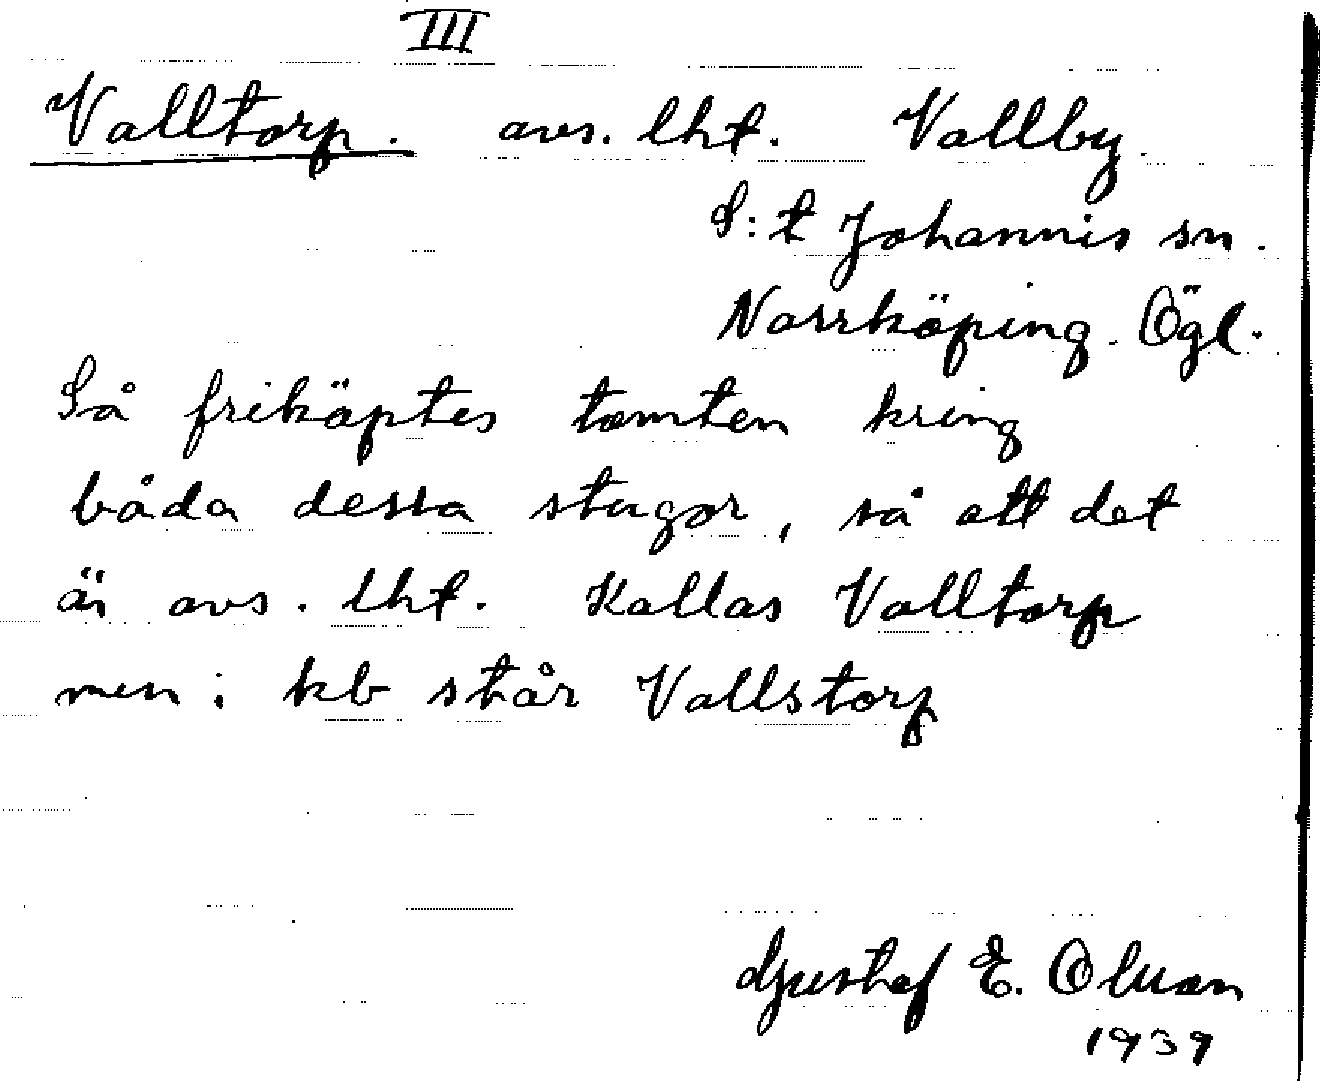 III
Valltorp. avs. lht. Vallby.
S:t Johannis sn.
Norrköping. Ögl.
Så friköptes tomten kring
båda dessa stugor, så att det
är avs. lht. Kallas Valltorp
men i kb står Vallstorp
Gustaf E. Olsson
1939